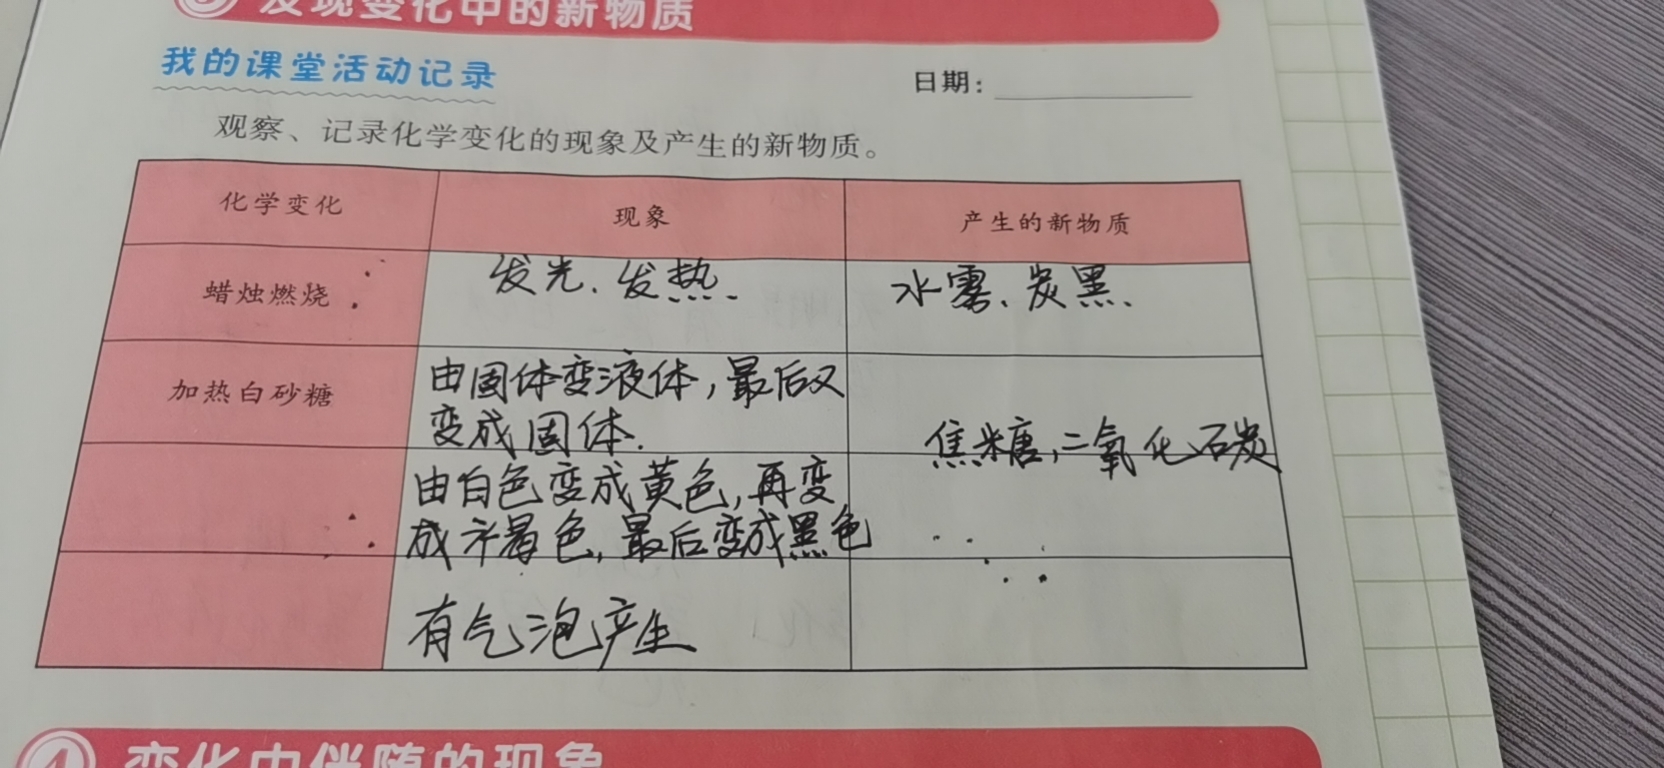 发现变化中的新物质
我的课堂活动记录
日期：
观察、记录化学变化的现象及产生的新物质。
化学变化
现象
产生的新物质
蜡烛燃烧
发光、发热.
水雾、炭黑.
加热白砂糖
由固体变液体，最后又
变成固体.
焦糖，二氧化石炭
由白色变成黄色，再变
成褐色，最后变成黑色
有气泡产生
4 变化中伴随的现象